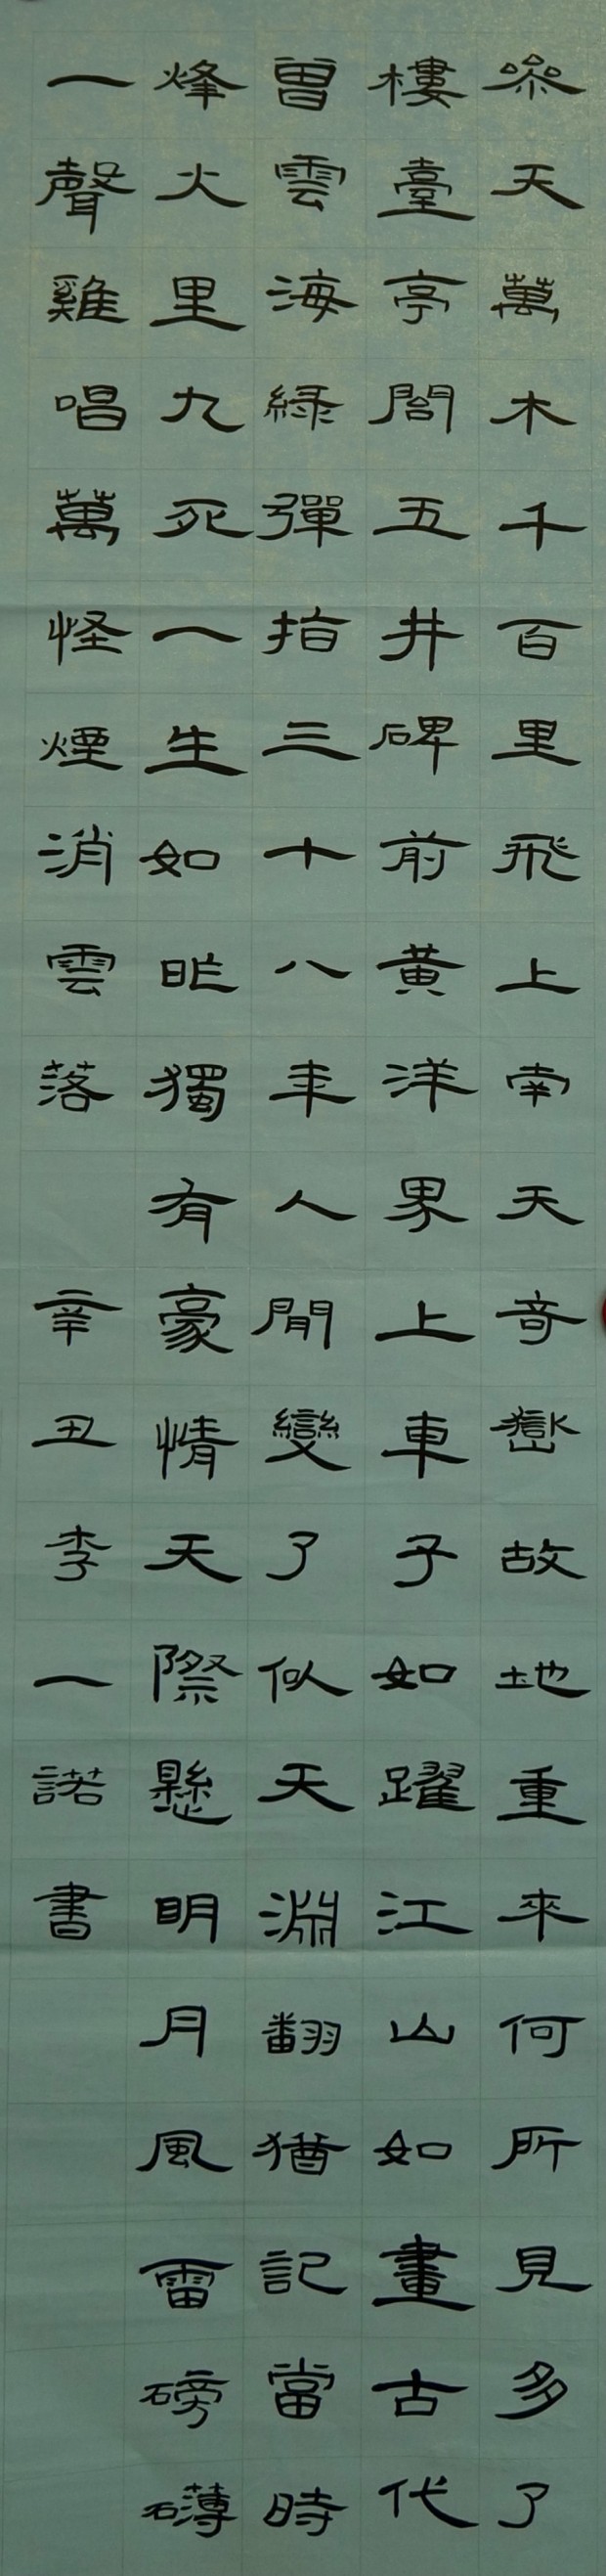 參天萬木千百里飛上南天奇嶽故地重來何所見多了
樓臺亭閣五井碑前黃洋界上車子如躍江山如畫古代
曾雲海綠彈指三十八年人閒變了似天淵翻猶記當時
烽火里九死一生如昨獨有豪情天際懸明月風雷磅礴
一聲雞唱萬怪煙消雲落 辛丑李一諾書